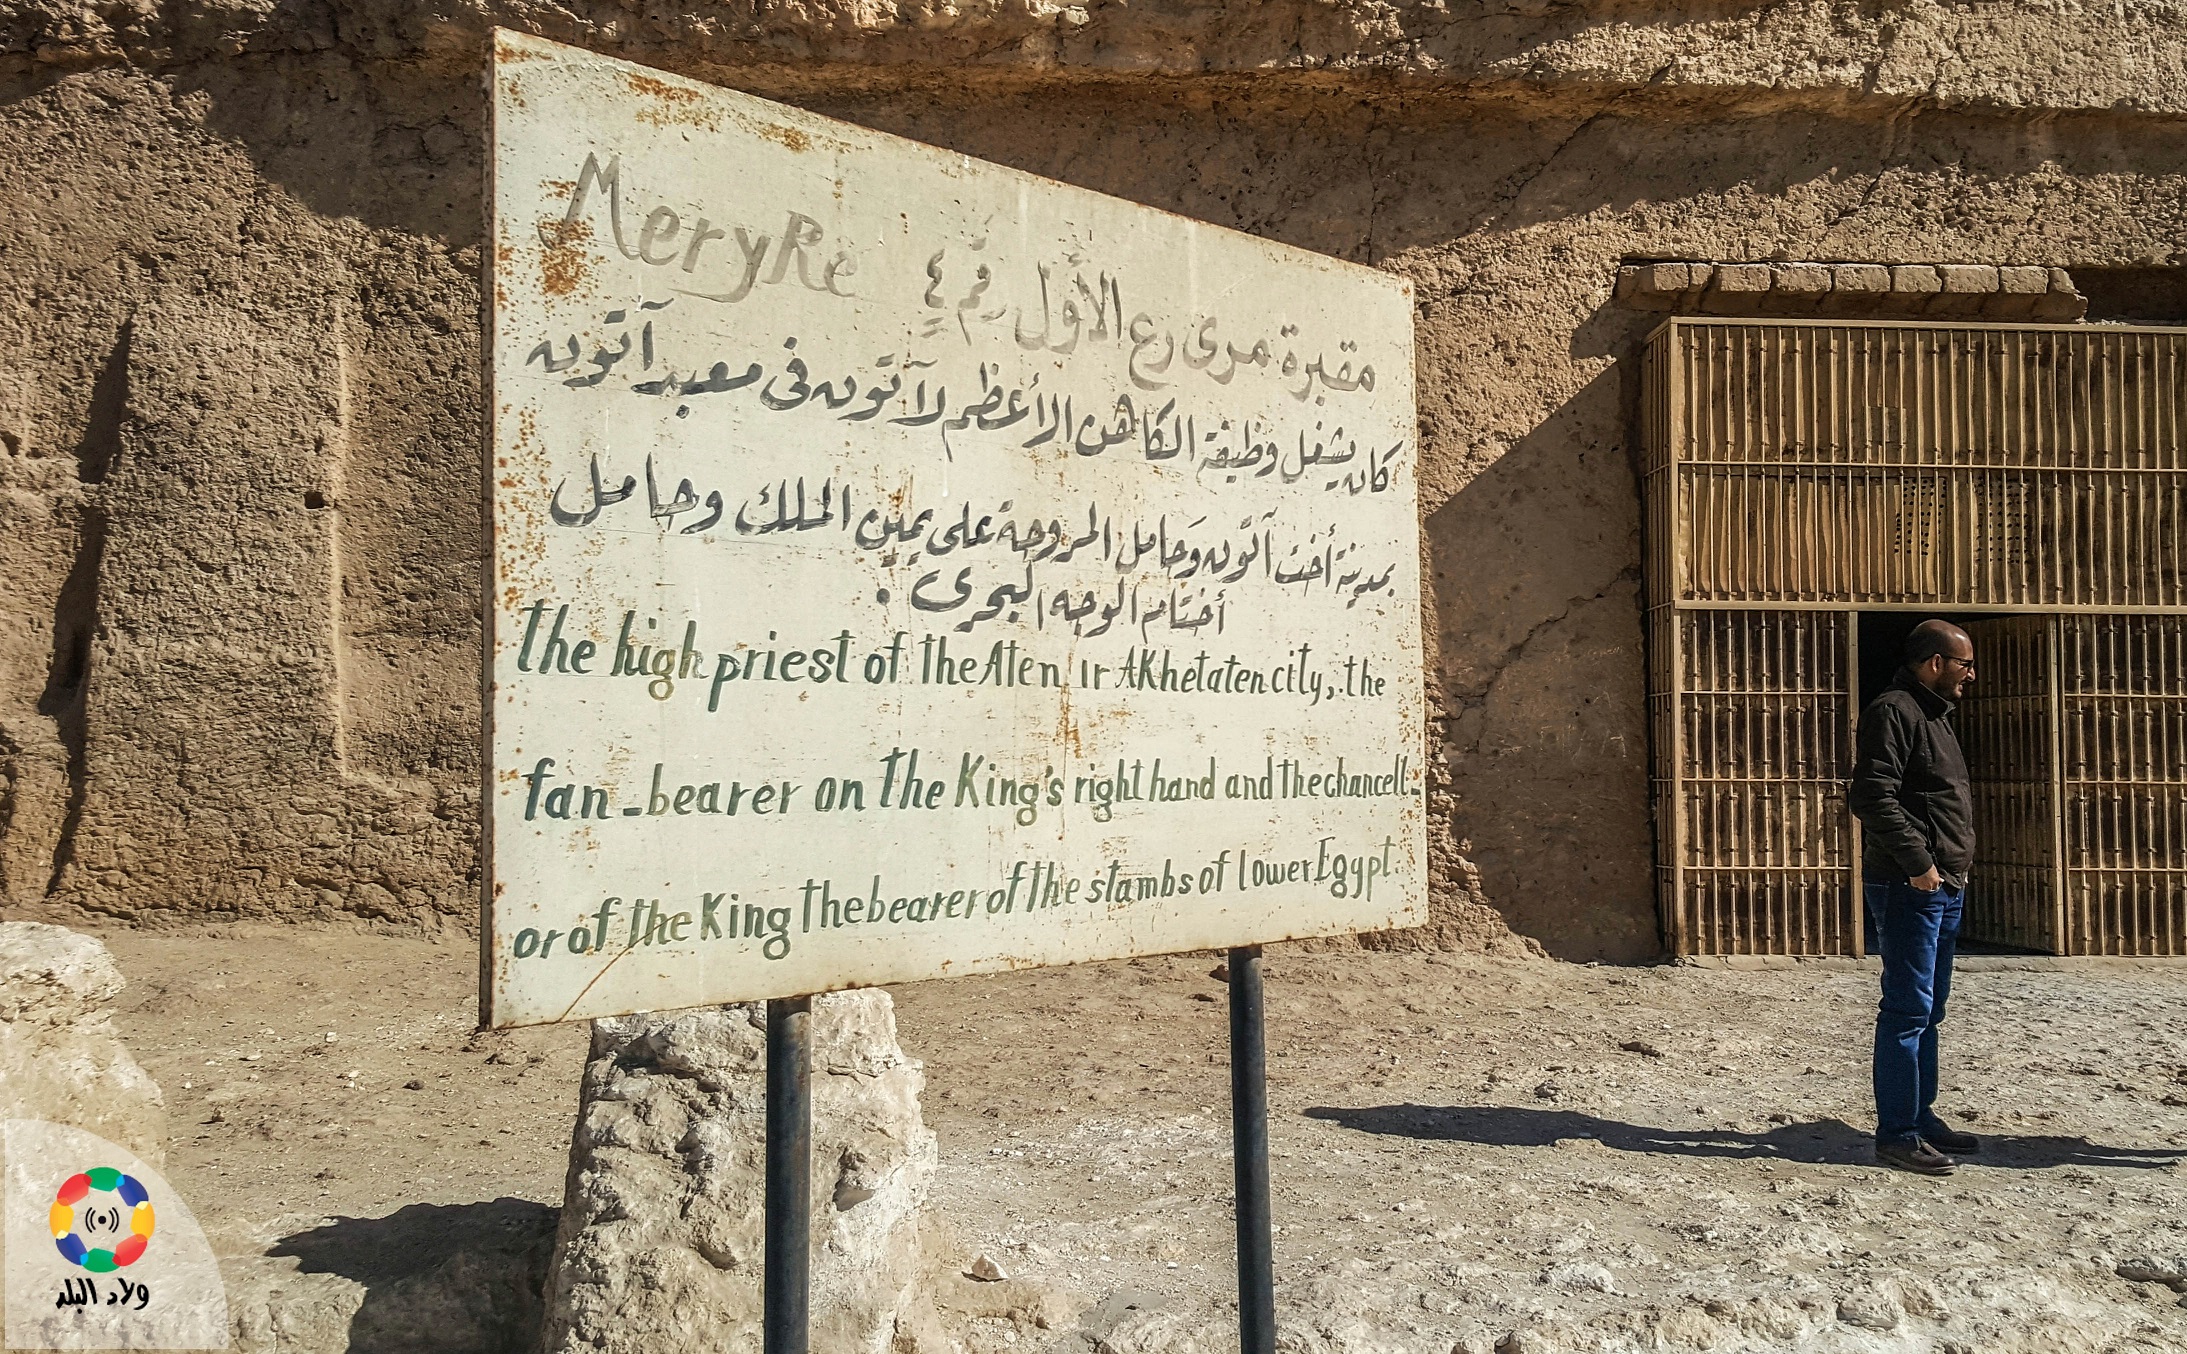 MeryRe
مقبرة مرى رع الأول رقم ٤
كان يشغل وظيفة الكاهن الأعظم لآتون فى معبد آتون
بمدينة أخت آتون وحامل المروحة على يمين الملك وحامل
أختام الوجه البحرى .
the high priest of the Aten ir AKhetaten city, .the
fan_bearer on the King's right hand and the chancell-
or of the King the bearer of the stambs of lower Egypt.
ولاد البلد